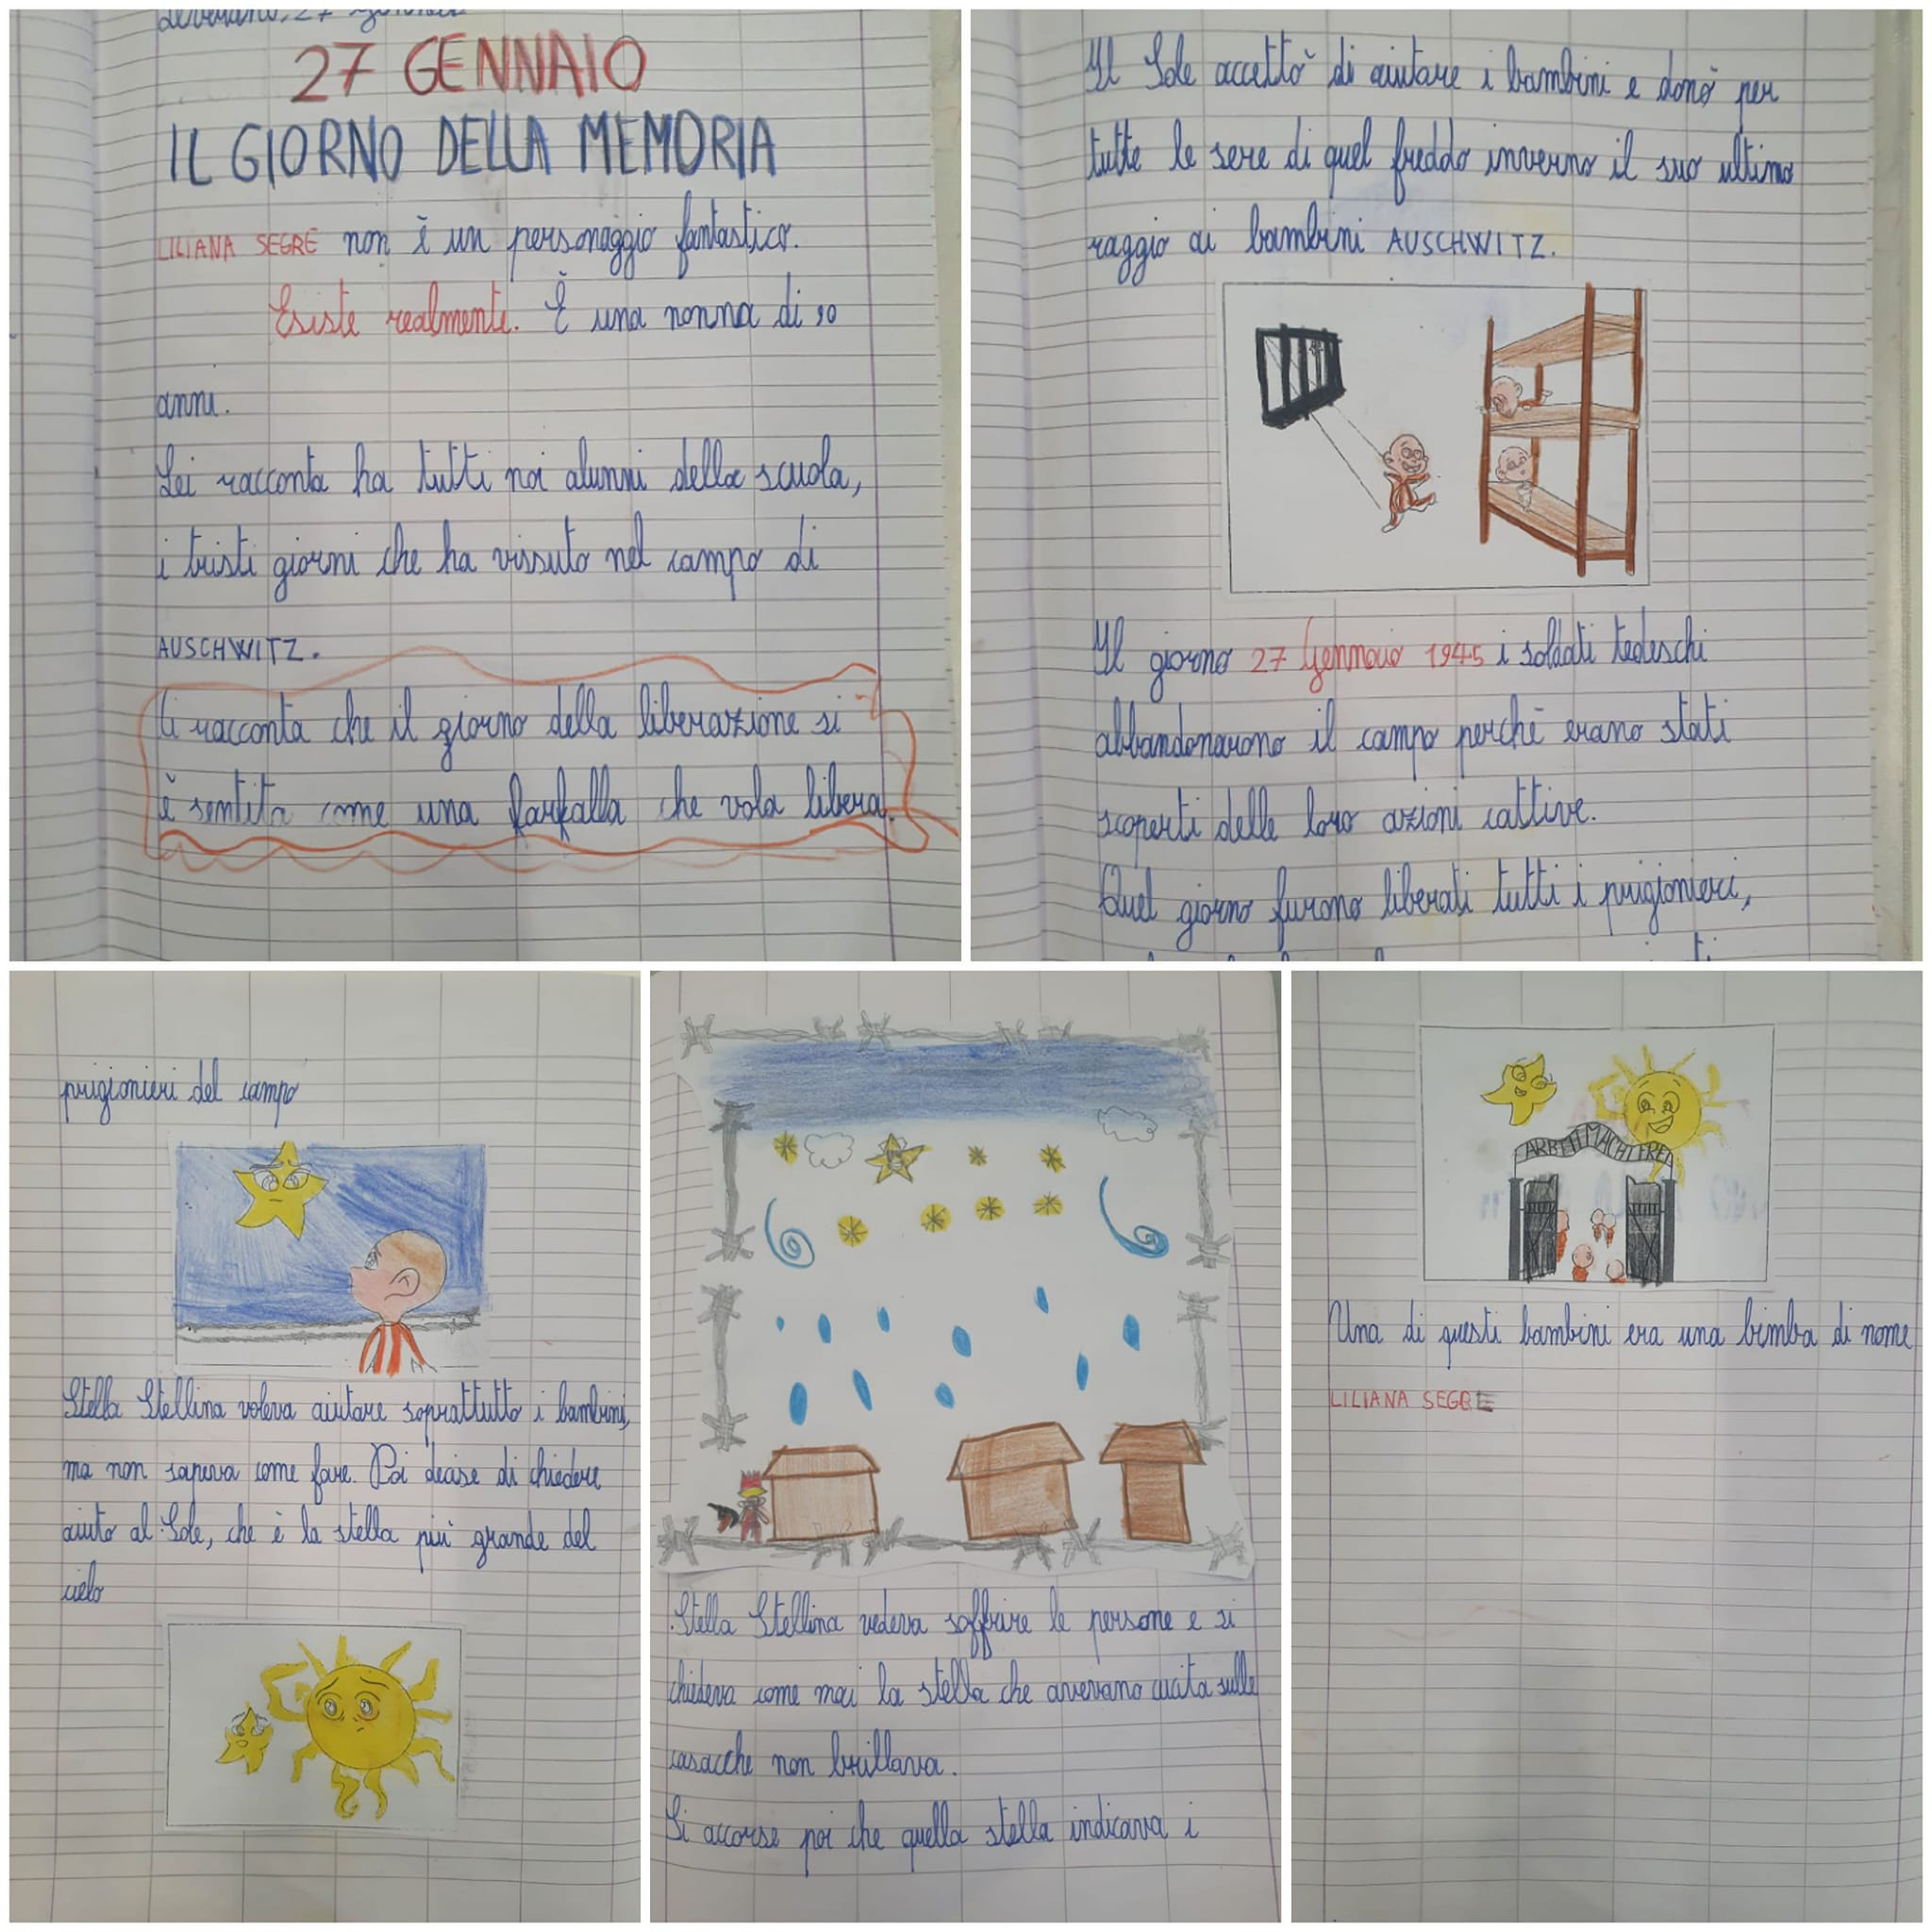 27 GENNAIO
IL GIORNO DELLA MEMORIA
LILIANA SEGRE non è un personaggio fantastico.
Esiste realmente. È una nonna di 90
anni.
Lei racconta ha tutti noi alunni della scuola,
i tristi giorni che ha vissuto nel campo di
AUSCHWITZ.
Ci racconta che il giorno della liberazione si
è sentita come una farfalla che vola libera.
Il Sole accettò di aiutare i bambini e donò per
tutte le sere di quel freddo inverno il suo ultimo
raggio ai bambini AUSCHWITZ.
Il giorno 27 Gennaio 1945 i soldati tedeschi
abbandonarono il campo perché erano stati
scoperti delle loro azioni cattive.
Quel giorno furono liberati tutti i prigionieri,
prigionieri del campo
Stella Stellina voleva aiutare soprattutto i bambini,
ma non sapeva come fare. Poi decise di chiedere
aiuto al Sole, che è la stella più grande del
cielo
Stella Stellina vedeva soffrire le persone e si
chiedeva come mai la stella che avevano cucita sulle
casacche non brillava.
Si accorse poi che quella stella indicava i
ARBEIT MACHT FREI
Una di questi bambini era una bimba di nome
LILIANA SEGRE